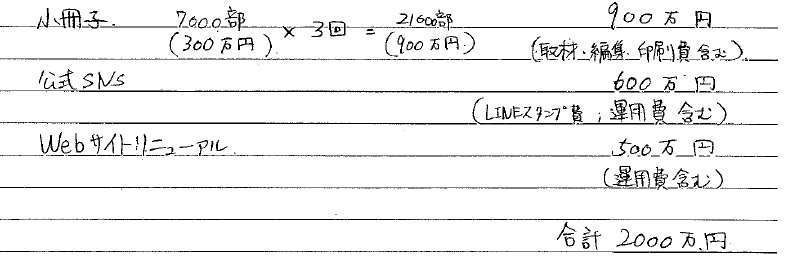 小冊子 7000部 × 3回 = 21000部 900万円
(300万円) (900万円) (取材・編集・印刷費含む)
公式SNS 600万円
(LINEスタンプ費、運用費含む)
Webサイトリニューアル 500万円
(運用費含む)
合計 2000万円